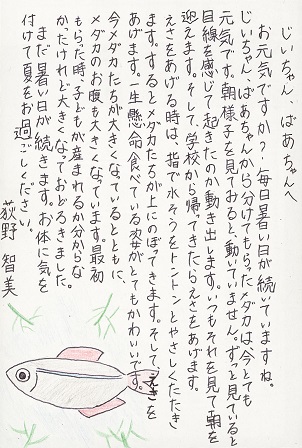 じいちゃん、ばあちゃんへ
お元気ですか？毎日暑い日が続いていますね。
じいちゃん、ばあちゃんから分けてもらったメダカは、今とても
元気です。朝、様子を見てみると、動いていません。ずっと見ていると
目線を感じて起きたのか動き出します。いつもそれを見て朝を
迎えます。そして、学校から帰ってきたらえさをあげます。
えさをあげる時は、指で水そうをトントンとやさしくたたき
ます。するとメダカたちが上にのぼってきます。そして、えさを
あげます。一生懸命食べている姿がとてもかわいいです。
今メダカたちが大きくなっているとともに、
メダカのお腹も大きくなっています。最初
もらった時、子どもが産まれるか分からな
かったけれど大きくなっておどろきました。
まだ暑い日が続きます。お体に気を
付けて夏をお過ごしください。
荻野 智美